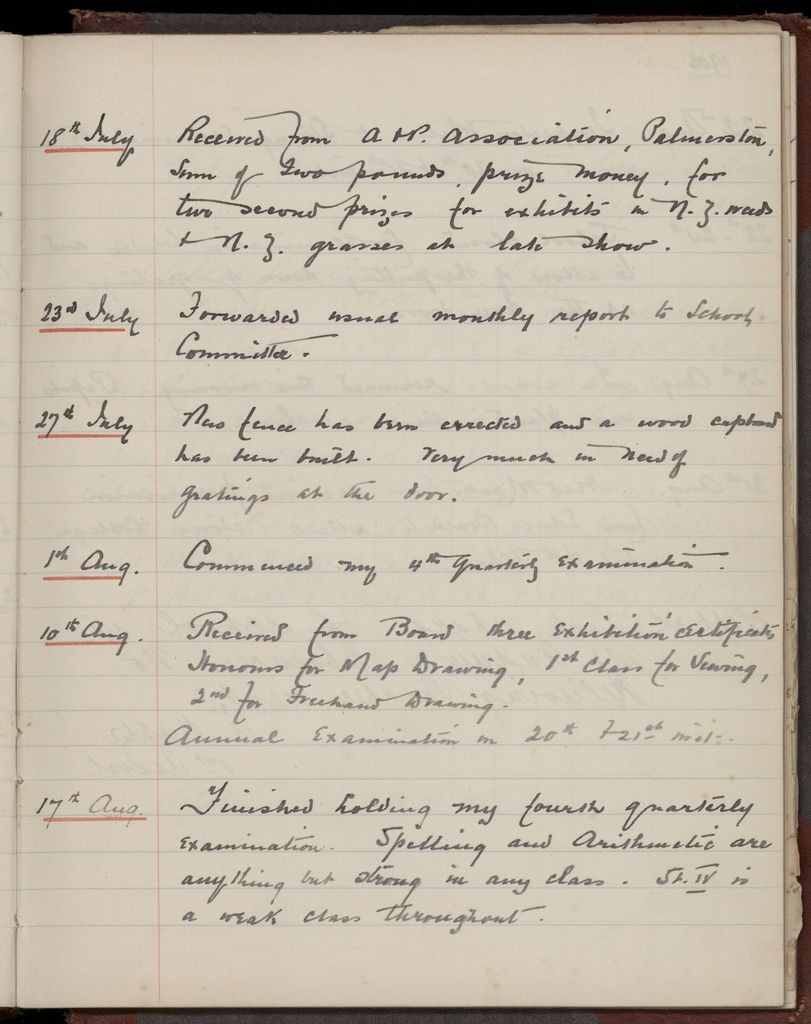 18th July Received from A & P. Association, Palmerston,
Sum of two pounds, prize money, for
two second prizes for exhibits in N.Z. weeds
& N.Z. grasses at late show.
23rd July Forwarded usual monthly report to School
Committee.
27th July New fence has been errected and a wood cupboard
has been built. Very much in need of
gratings at the door.
1st Aug. Commenced my 4th Quarterly Examination.
10th Aug. Received from Board three Exhibition certificates
Honours for Map Drawing, 1st Class for Sewing,
2nd for Freehand Drawing.
Annual Examination on 20th & 21st inst.
17th Aug. Finished holding my fourth quarterly
examination. Spelling and Arithmetic are
anything but strong in any class. St. IV is
a weak class throughout.